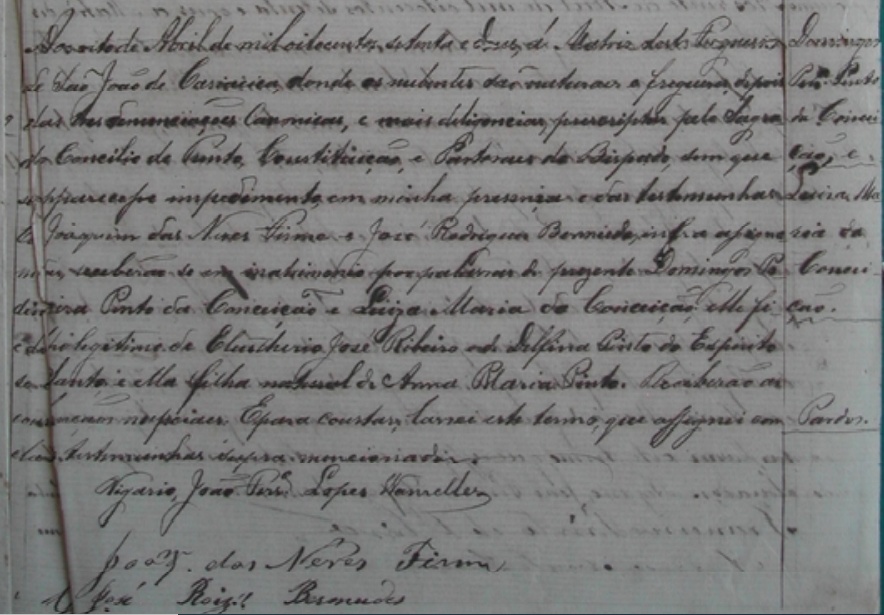 Aos oito de Abril de mil oitocentos setenta e dous, n'a Matriz desta Freguesia
de São João de Cariacica, donde os nubentes são naturaes e freguezes, depois
das tres denunciações Canonicas, e mais diligencias prescriptas pelo Sagra
do Concilio de Trento, Constituição, e Pastoraes do Bispado, sem que
apparecesse impedimento, em minha presença e das testemunhas
Joaquim das Neves Firme e José Rodrigues Bermudes, infra assigna
receberão se em matrimonio por palavras de presente Domingos Pe
reira Pinto da Conceição e Luiza Maria da Conceição, elle fi
lho legitimo de Eleutherio José Ribeiro e de Delfina Pinto do Espirito
Santo, e ella filha natural de Anna Maria Pinto. Receberão as
nupciaes. E para constar, lancei este termo, que assignei com
testemunhas supra mencionadas.
Vigario, João Ferr.ª Lopes
Joaq.m das Neves Firme
José Roiz.' Bermudes
Domingos
Per.ª Pinto
da Concei
ção, e
Luiza Ma
ria da
Concei
ção.
Pardos.